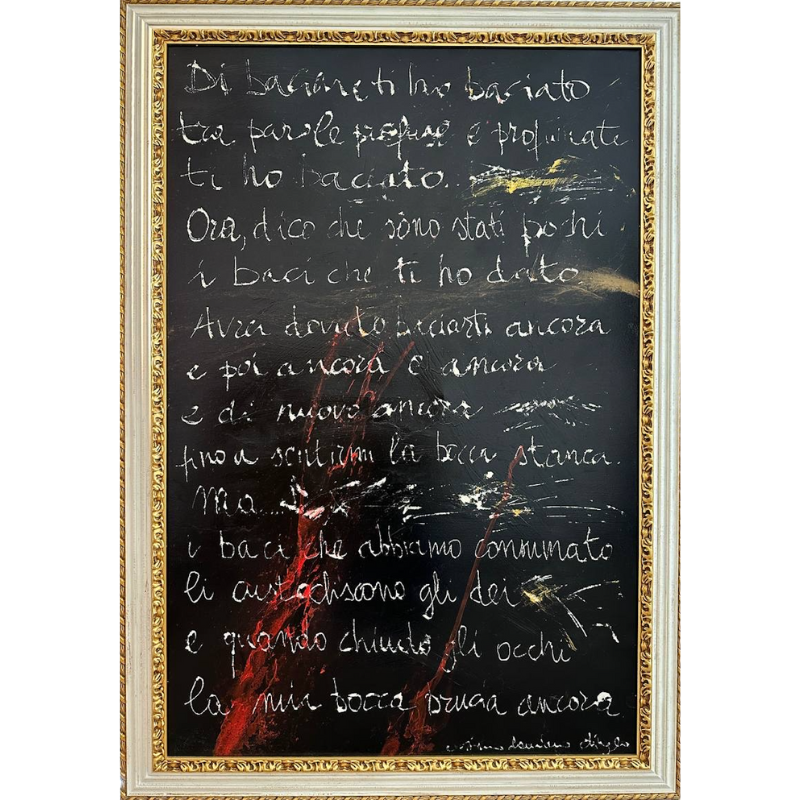 Di baciare ti ho baciato
tra parole profuse e profumate
ti ho baciato.
Ora, dico che sono stati pochi
i baci che ti ho dato.
Avrei dovuto baciarti ancora
e poi ancora e ancora
e di nuovo ancora
fino a sentirmi la bocca stanca.
Ma...
i baci che abbiamo consumato
li custodiscono gli dei
e quando chiudo gli occhi
la mia bocca brucia ancora